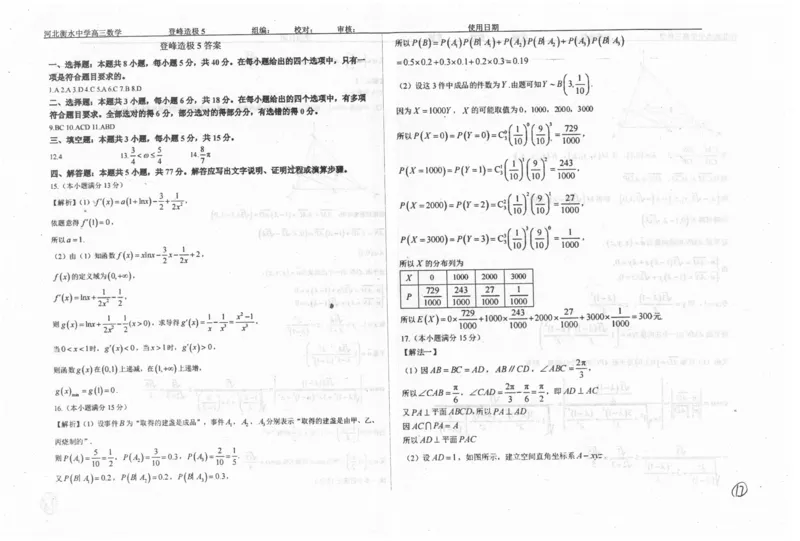 河北衡水中学高三数学 登峰造极 5 组编: 校对: 审核: 使用日期
登峰造极 5 答案
一、选择题:本题共 8 小题,每小题 5 分,共 40 分。在每小题给出的四个选项中,只有一
项是符合题目要求的。
1.A 2.A 3.D 4.C 5.A 6.C 7.B 8.D
二、选择题:本题共 3 小题,每小题 6 分,共 18 分。在每小题给出的四个选项中,有多项
符合题目要求。全部选对的得 6 分,部分选对的得部分分,有选错的得 0 分。
9.BC 10.ACD 11.ABD
三、填空题:本题共 3 小题,每小题 5 分,共 15 分。
12.4 13. 3/4 < ω ≤ 5/4 14. 8/7 π
四、解答题:本题共 5 小题,共 77 分。解答应写出文字说明、证明过程或演算步骤。
15.(本小题满分 13 分)
【解析】(1) f′(x)=a(1+lnx)-3/2+1/2x²,
依题意得 f′(1)=0,
所以 a=1.
(2)由(1)知函数 f(x)=xlnx-3/2x-1/2x+2,
f(x)的定义域为(0,+∞),
f′(x)=lnx+1/2x²-1/2,
则 g(x)=lnx+1/2x²-1/2(x>0),求导得 g′(x)=1/x-1/x³=x²-1/x³,
当 0<x<1时,g′(x)<0,当 x>1时,g′(x)>0,
则函数 g(x)在(0,1)上递减,在(1,+∞)上递增,
g(x)min=g(1)=0.
16.(本小题满分 15 分)
【解析】(1)设事件 B 为“取得的建盏是成品”,事件 A₁,A₂,A₃分别表示“取得的建盏是由甲、乙、
丙烧制的”.
则 P(A₁)=5/10=1/2,P(A₂)=3/10=0.3,P(A₃)=2/10=1/5.
又 P(B|A₁)=0.2,P(B|A₂)=0.2,P(B|A₃)=0.3,
所以 P(B)=P(A₁)P(B|A₁)+P(A₂)P(B|A₂)+P(A₃)P(B|A₃)
=0.5×0.2+0.3×0.1+0.2×0.3=0.19
(2)设这 3 件中成品的件数为 Y.由题可知 Y~B(3,1/10).
因为 X=1000Y,X 的可能取值为 0,1000,2000,3000
所以 P(X=0)=P(Y=0)=C₃⁰(1/10)⁰(9/10)³=729/1000,
P(X=1000)=P(Y=1)=C₃¹(1/10)¹(9/10)²=243/1000,
P(X=2000)=P(Y=2)=C₃²(1/10)²(9/10)¹=27/1000,
P(X=3000)=P(Y=3)=C₃³(1/10)³(9/10)⁰=1/1000,
所以 X 的分布列为
X 0 1000 2000 3000
P 729/1000 243/1000 27/1000 1/1000
所以 E(X)=0×729/1000+1000×243/1000+2000×27/1000+3000×1/1000=300元.
17.(本小题满分 15 分)
【解法一】
(1)因 AB=BC=AD,AB∥CD,∠ABC=2π/3,
所以∠CAB=π/6,∠CAD=2π/3-π/6=π/2,即 AD⊥AC
又 PA⊥平面 ABCD,所以 PA⊥AD
因 AC∩PA=A
所以 AD⊥平面 PAC
(2)设 AD=1,如图所示,建立空间直角坐标系 A-xyz.
⑰